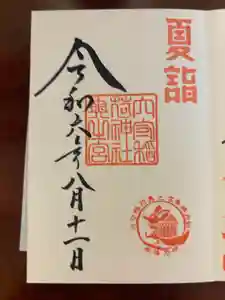 夏詣
穴守稲
荷神社
奥之宮
令和六年八月十一日